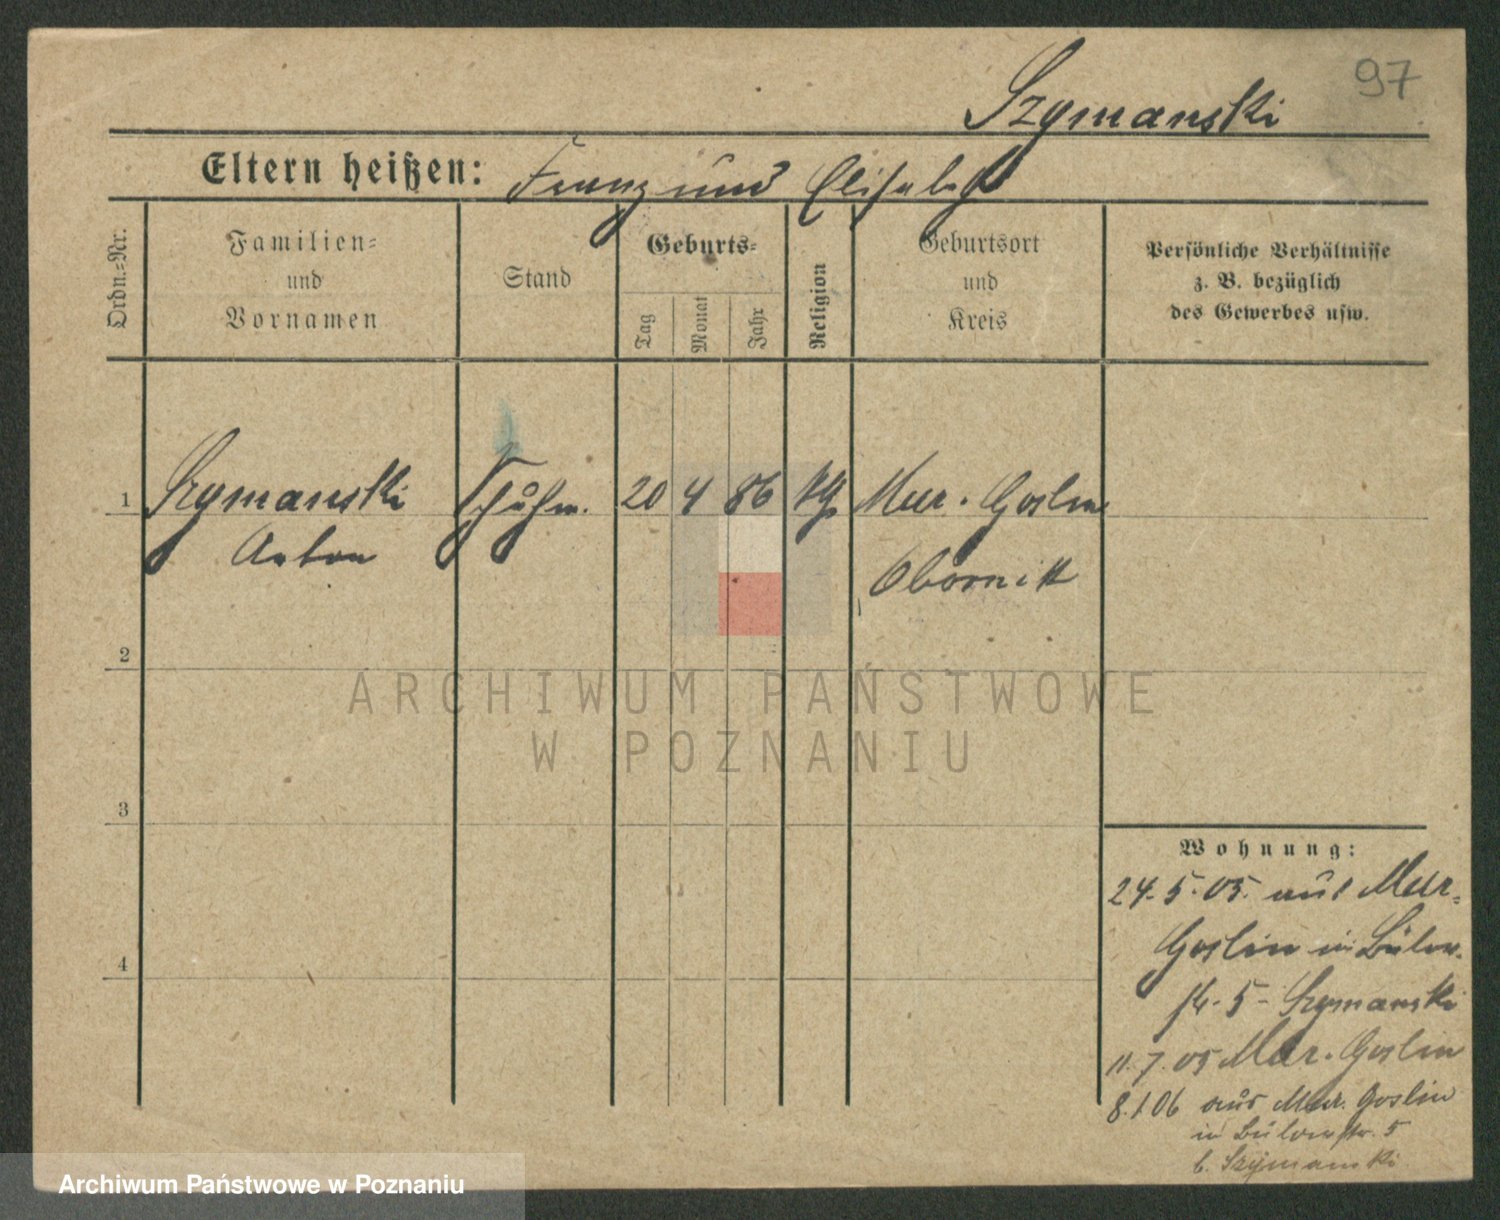 97
Szymanski
Eltern heißen: Franz und Elisabeth
Ordn.=Nr.
Familien=
und
Vornamen
Stand
Geburts=
Tag
Monat
Jahr
Religion
Geburtsort
und
Kreis
Persönliche Verhältnisse
z. B. bezüglich
des Gewerbes usw.
1 Szymanski Schuhm. 20 4 86 kth Mur. Goslin
Anton Obornik
2
ARCHIWUM PAŃSTWOWE
W POZNANIU
3
4
Wohnung:
24.5.05. aus Mur=
Goslin in Bülow.
str. 5 - Szymanski
11.7.05 Mur. Goslin
8.1.06 aus Mur. Goslin
in Bülowstr. 5
b. Szymanski
Archiwum Państwowe w Poznaniu